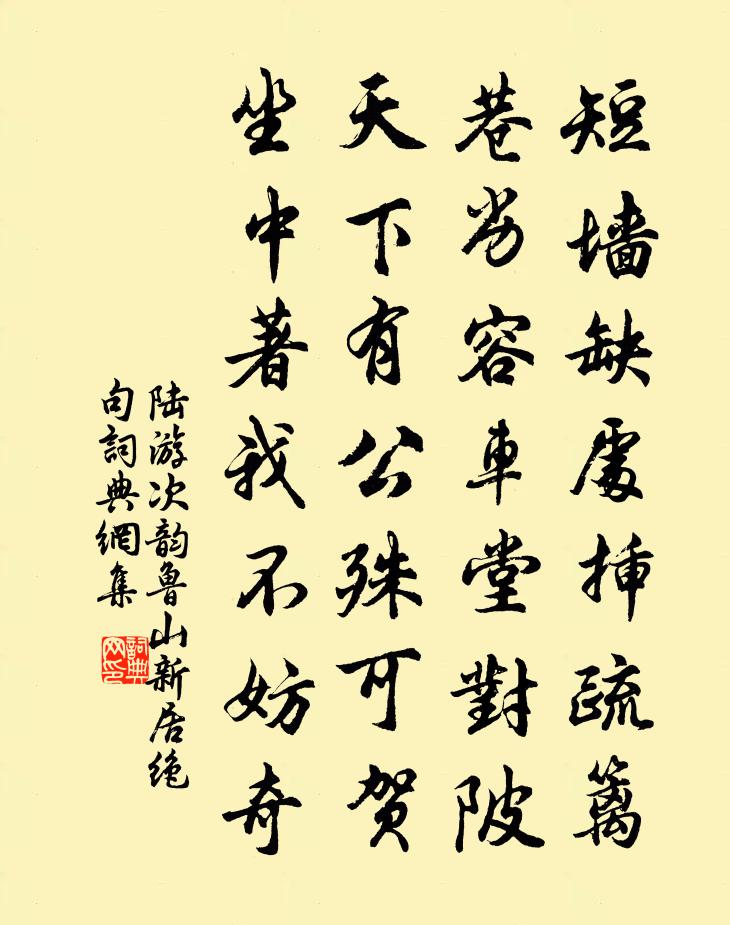 短墙缺處挿疏篱
巷劣容車堂對陂
天下有公殊可贺
坐中著我不妨奇
陆游次韵魯山新居绝
句詞典網集
詞典
网印